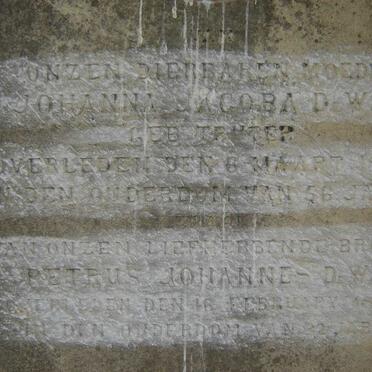 ONZEN DIERBAREN MOED
JOHANNA JACOBA D.W
GEB
OVERLEDEN DEN 6 MAART
DEN OUDERDOM VAN 56 JA
VAN ONZEN LIEFHEBBENDE BR
PETRUS JOHANNES D.W
VERLEDEN DEN 16 FEBRUARY
IN DEN OUDERDOM VAN 22